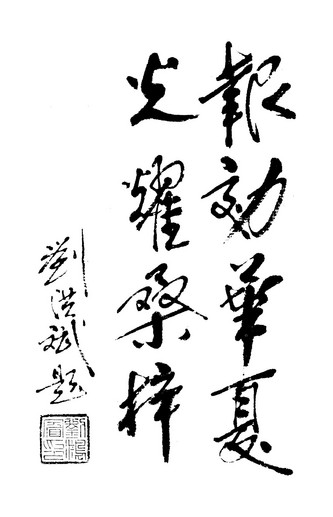 報効華夏
光耀桑梓
劉洪斌題